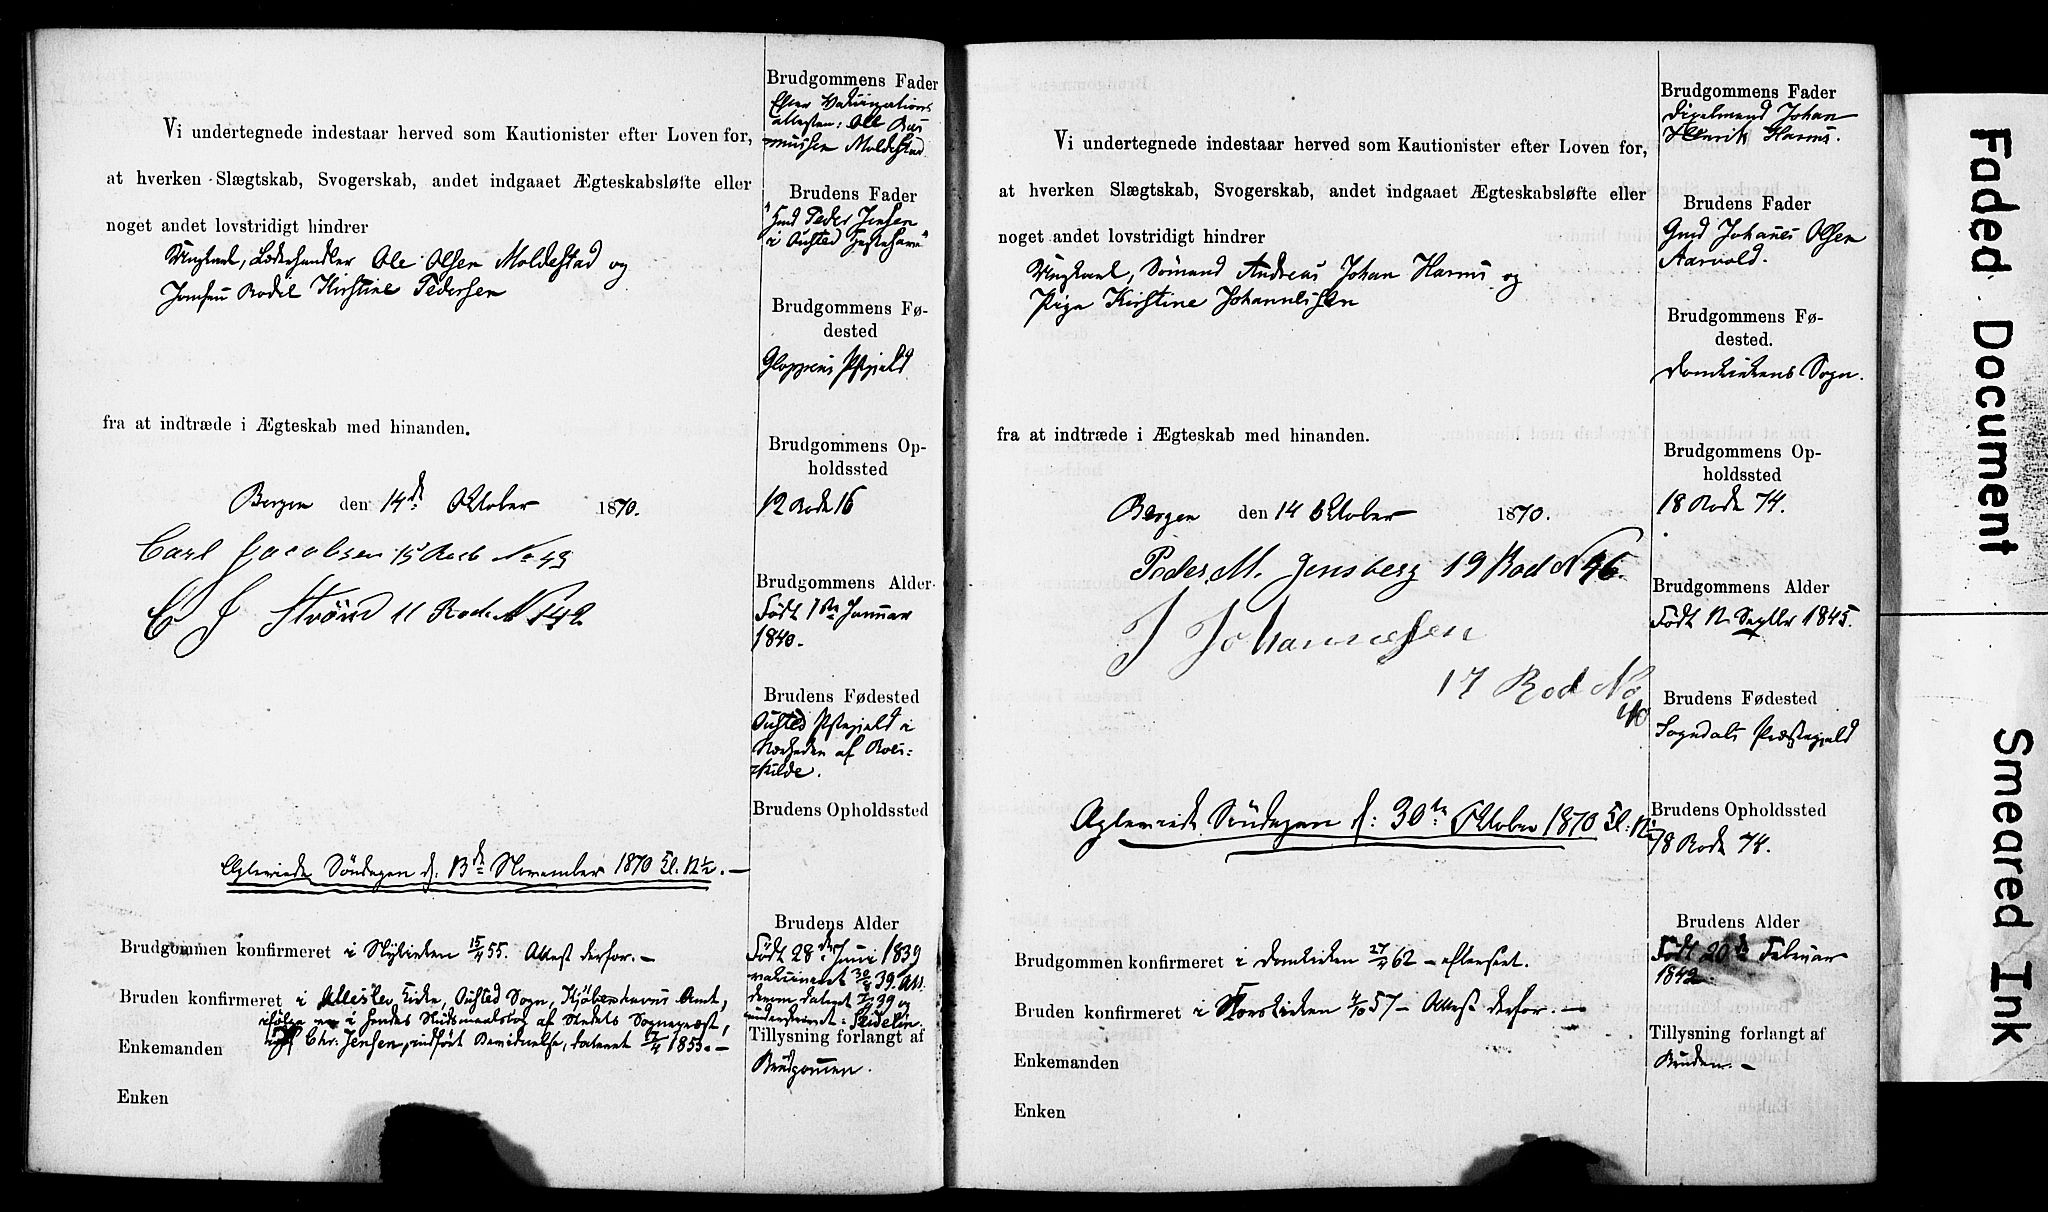 Vi undertegnede indestaar herved som Kautionister efter Loven for,
at hverken Slægtskab, Svogerskab, andet indgaaet Ægteskabsløfte eller
noget andet lovstridigt hindrer
Ungkarl, Læderhandler Ole Olsen Moldestad og
Jomfru Bodel Kirstine Pedersen
fra at indtræde i Ægteskab med hinanden.
Bergen den 14de Oktober 1870.
Carl Jacobsen 15 Rode No 43
C J Strömd 11 Rode No
Copulerede Söndagen d. 13de November 1870 Kl. 12½. —
Brudgommen konfirmeret i Nykirken 15/4 55. Attest derfor. —
Bruden konfirmeret i Allerslev Kirke, Ousted Sogn, Kjöbenhavns Amt,
ifölge en i hendes Skudsmaalsbog af Stedets Sognepræst,
Chr. Jensen, indfört Bevidnelse, dateret 1853. —
Enkemanden
Enken
Brudgommens Fader
Efter Vakcinations
attesten: Ole Ras
mussen Moldestad.
Brudens Fader
"Hmd Peder Jensen
i Ousted
Brudgommens Fø-
dested
Gloppens Pstgjeld
Brudgommens Op-
holdssted
12 Rode 16
Brudgommens Alder
Födt 1ste Januar
1840.
Brudens Fødested
Ousted Pstgjeld i
Nærheden af Roes-
kilde.
Brudens Opholdssted
Brudens Alder
Födt 28de Juni 1839
vakcineret 39. Att.
derom dateret 39 og
underskrevet: Seidelin.
Tillysning forlangt af
Brudgommen.
Vi undertegnede indestaar herved som Kautionister efter Loven for,
at hverken Slægtskab, Svogerskab, andet indgaaet Ægteskabsløfte eller
noget andet lovstridigt hindrer
Ungkarl, Sömand Andreas Johan Harms og
Pige Kirstine Johannessen
fra at indtræde i Ægteskab med hinanden.
Bergen den 14 Oktober 1870.
Peder M. Jensberg 19 Rod No 46.
J Johannesen
17 Rod No
Copulerede Söndagen d: 30te Oktober 1870 Kl. 12
Brudgommen konfirmeret i Domkirken 27/4 62 — efterseet.
Bruden konfirmeret i Korskirken 4/10 57 — Attest derfor. —
Enkemanden
Enken
Brudgommens Fader
Johan
Henrik Harms.
Brudens Fader
Gmd Johanes Olsen
Aarvold.
Brudgommens Fø-
dested.
Domkirkens Sogn.
Brudgommens Op-
holdssted
18 Rode 74.
Brudgommens Alder
Födt 12 Septbr 1845.
Brudens Fødested
Sogndals Præstegjeld
Brudens Opholdssted
18 Rode 74.
Brudens Alder
Födt 20de Februar
1842.
Tillysning forlangt af
Bruden. —
Faded Document
Smeared Ink